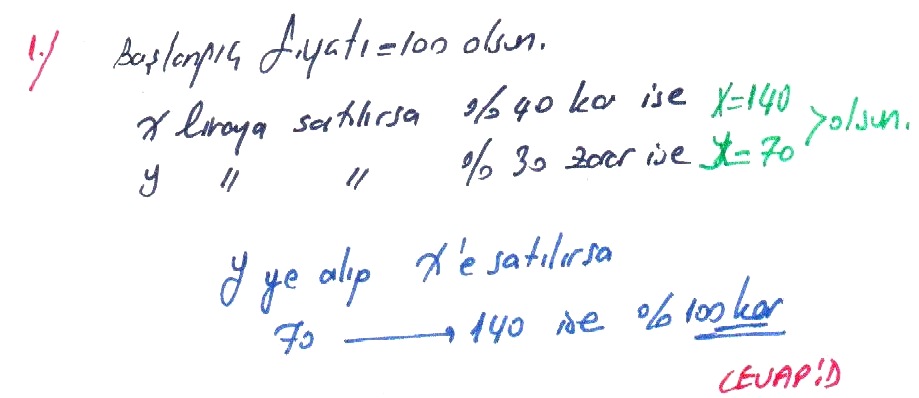 1.) Başlangıç fiyatı=100 olsun.
x liraya satılırsa %40 kar ise x=140 > olsun.
y " " %30 zarar ise y=70
y ye alıp x'e satılırsa
70 → 140 ise %100 kar
CEVAP:D